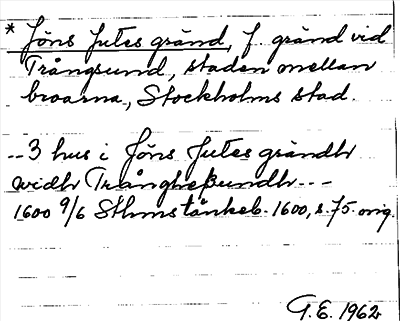 * Jöns Jutes gränd, f. gränd vid
Trångsund, staden mellan
broarna, Stockholms stad.
--3 hus i Jöns Jutes grändh
widh Trångheßundh---
1600 9/6 Sthms tänkeb. 1600, s. 75. orig.
G.E. 1962